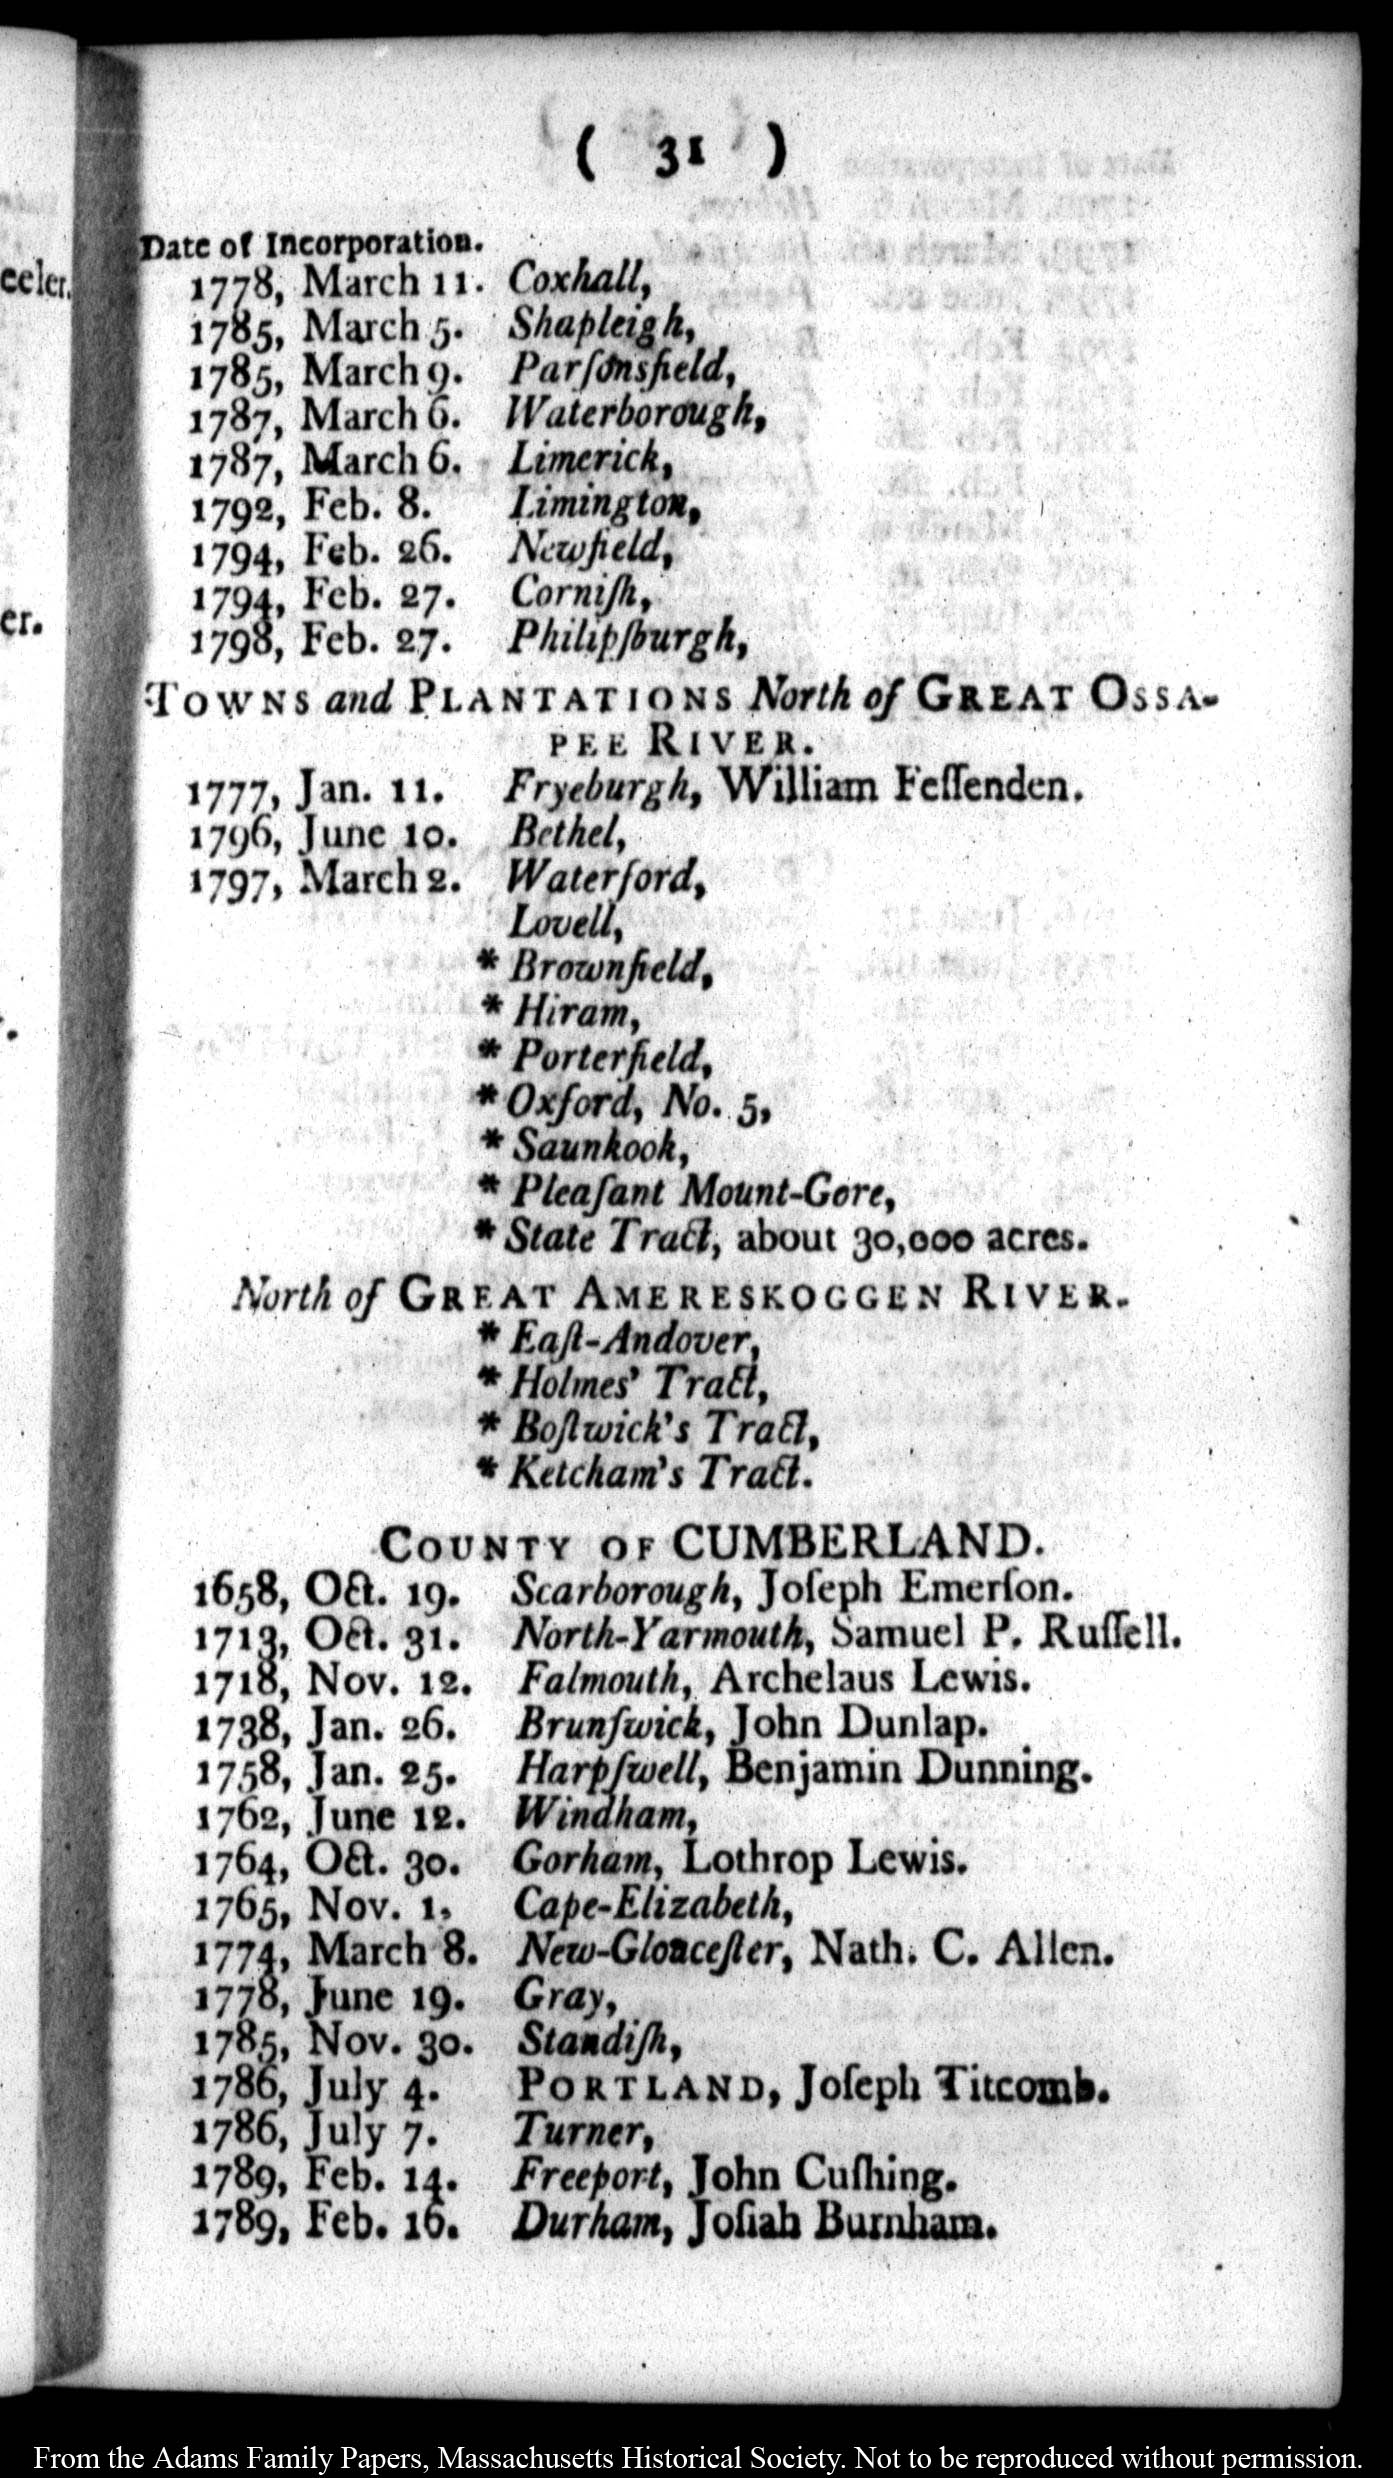 ( 31 )
eeler.
er.
Date of Incorporation.
1778, March 11. Coxhall,
1785, March 5. Shapleigh,
1785, March 9. Parſonsfield,
1787, March 6. Waterborough,
1787, March 6. Limerick,
1792, Feb. 8. Limington,
1794, Feb. 26. Newfield,
1794, Feb. 27. Corniſh,
1798, Feb. 27. Philipſburgh,
TOWNS and PLANTATIONS North of GREAT OSSA-
PEE RIVER.
1777, Jan. 11. Fryeburgh, William Feſſenden.
1796, June 10. Bethel,
1797, March 2. Waterford,
Lovell,
* Brownfield,
* Hiram,
* Porterfield,
* Oxford, No. 5,
* Saunkook,
* Pleaſant Mount-Gore,
* State Tract, about 30,000 acres.
North of GREAT AMERESKOGGEN RIVER.
* Eaſt-Andover,
* Holmes' Tract,
* Boſtwick's Tract,
* Ketcham's Tract.
COUNTY OF CUMBERLAND.
1658, Oct. 19. Scarborough, Joſeph Emerſon.
1713, Oct. 31. North-Yarmouth, Samuel P. Ruſſell.
1718, Nov. 12. Falmouth, Archelaus Lewis.
1738, Jan. 26. Brunſwick, John Dunlap.
1758, Jan. 25. Harpſwell, Benjamin Dunning.
1762, June 12. Windham,
1764, Oct. 30. Gorham, Lothrop Lewis.
1765, Nov. 1, Cape-Elizabeth,
1774, March 8. New-Gloaceſter, Nath. C. Allen.
1778, June 19. Gray,
1785, Nov. 30. Standiſh,
1786, July 4. PORTLAND, Joſeph Titcomb.
1786, July 7. Turner,
1789, Feb. 14. Freeport, John Cuſhing.
1789, Feb. 16. Durham, Joſiah Burnham.
From the Adams Family Papers, Massachusetts Historical Society. Not to be reproduced without permission.